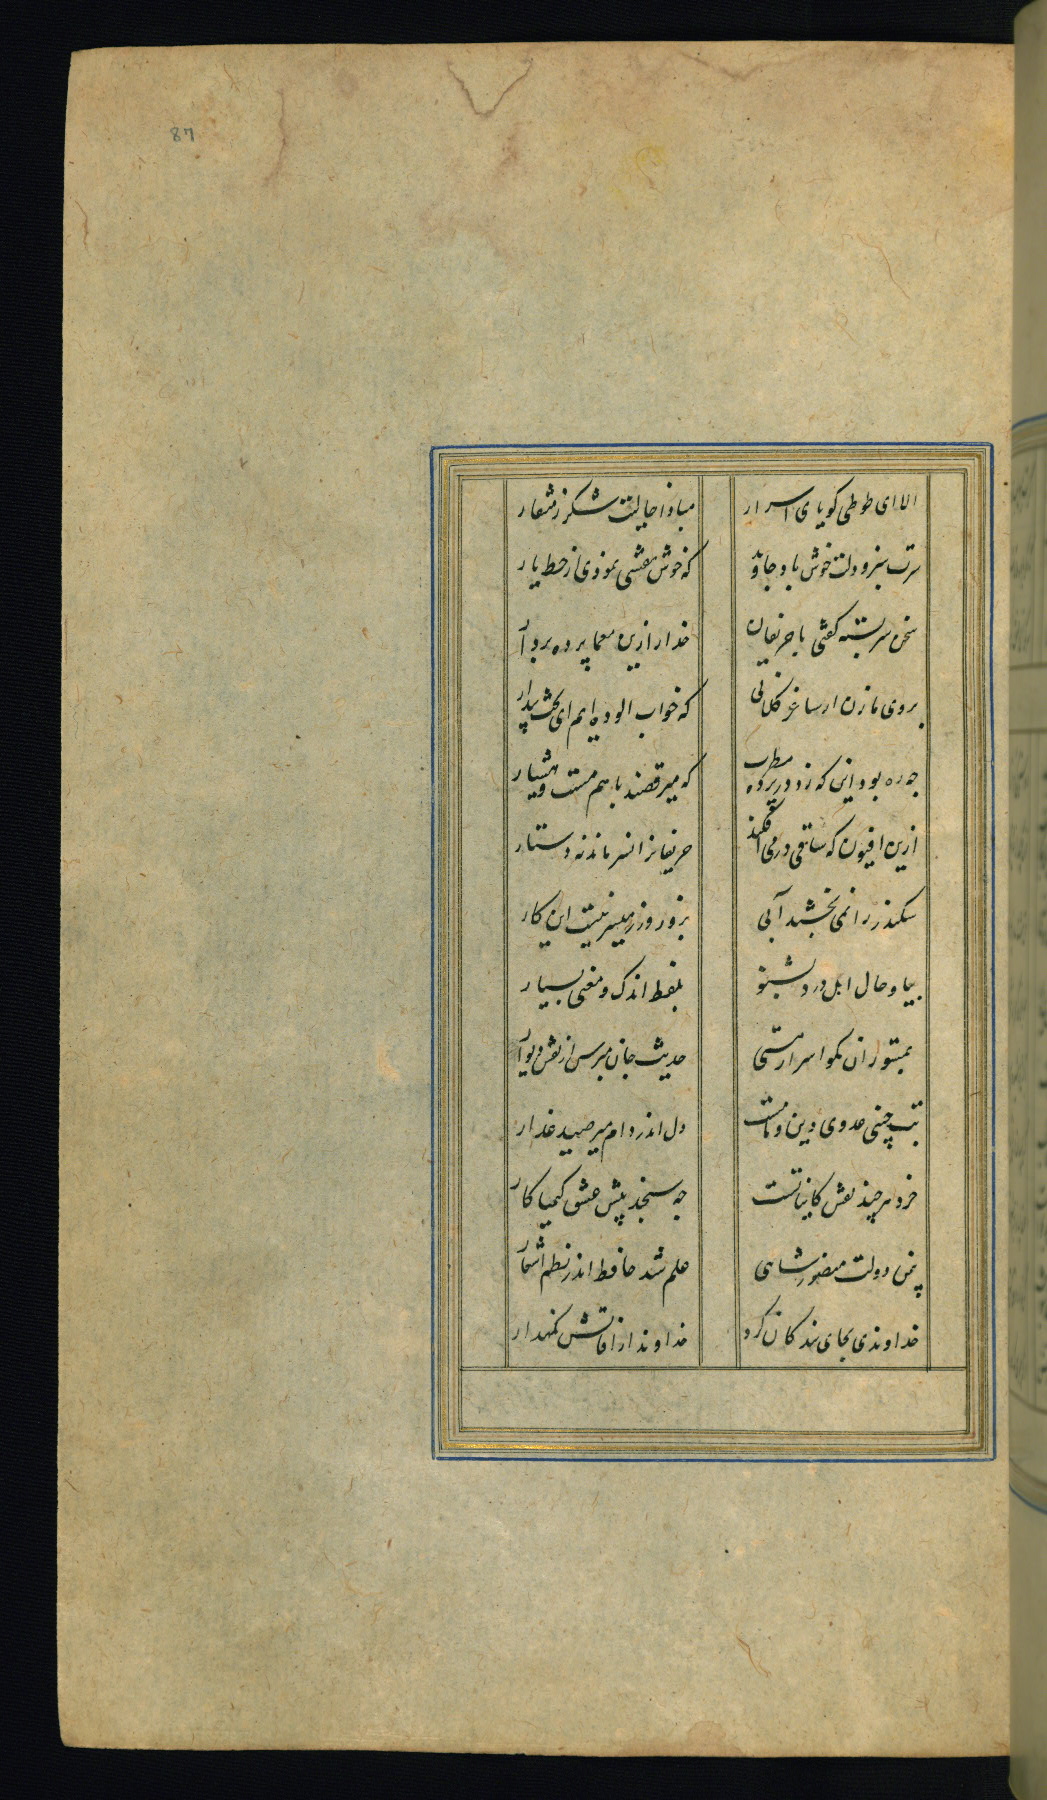 87
الا ای طوطی کویای اسرار مبادا خالیت شکر ز منقار
سرت سبز و دلت خوش باد جاوید که خوش نقشی نمودی از خط یار
سخن سربسته کفتی با حریفان خدا را زین معما پرده بردار
بروی ما زن از ساغر کلابی که خواب الوده ایم ای بخت بیدار
چه ره بود اینکه زد در پرده مطرب که میرقصند با هم مست و هشیار
ازین افیون که ساقی در می افکند حریفانرا نه سر ماند نه دستار
سکندر را نمی بخشند آبی بزور و زر میسر نیست این کار
بیا و حال اهل درد بشنو بلفظ اندک و معنی بسیار
بمستوران مکو اسرار مستی حدیث جان مپرس از نقش دیوار
بت چینی عدوی دین و ماست دل اندر دام میر صید غدار
خرد هر چند نقش کایناتست چه سنجد پیش عشق کیمیا کار
بیمن دولت منصور شاهی علم شد حافظ اندر نظم اشعار
خداوندی بجای بندکان کرد خداوندا ز آفاتش نکهدار